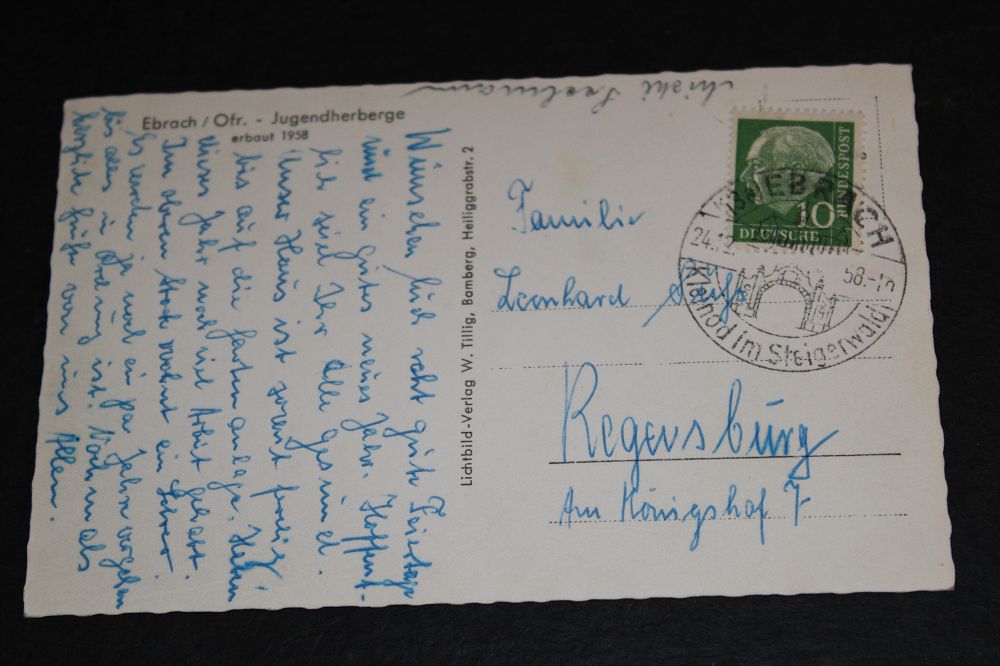 Ebrach / Ofr. - Jugendherberge
erbaut 1958
Wünschen Euch recht gute Feiertage
und ein gutes neues Jahr. Hoffent-
lich seid Ihr Alle gesund.
Unser Haus ist soweit fertig
bis auf die Gartenanlage. Hatten
dieses Jahr noch viel Arbeit gehabt.
Im oberen Stock wohnt ein Lehrer.
Es werden ja noch ein par Jahre vergehen
bis alles in Ordnung ist. Nochmals
herzliche Grüße von uns Allen.
Lichtbild-Verlag W. Tillig, Bamberg, Heiliggrabstr. 2
DEUTSCHE BUNDESPOST
10
EBRACH
24.12. 58-
Kleinod im Steigerwald
Familie
Leonhard
Regensburg
Am Königshof 7